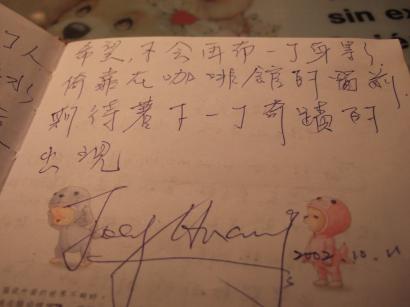 希望,不会再有一个身影,
倚靠在咖啡館的窗前,
期待著下一个奇蹟的
出現
Joey Huang
2002.10.11
sin ex